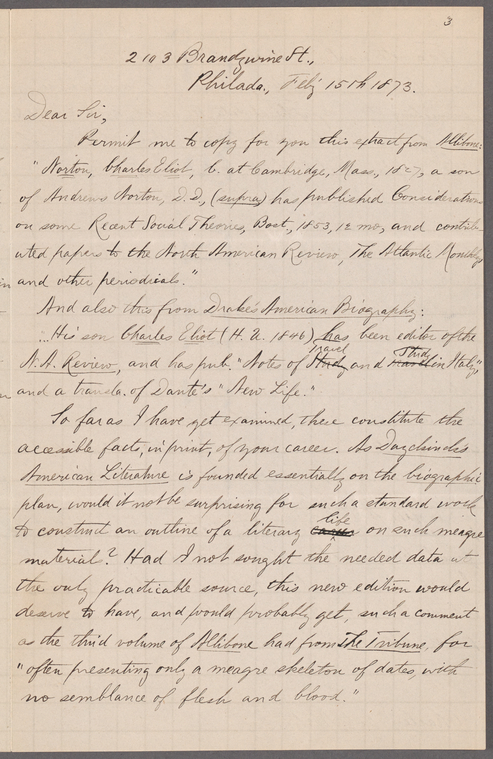 3
2103 Brandywine St.,
Philada., Feby 15th 1873.
Dear Sir,
Permit me to copy for you this extract from Allibone:
"Norton, Charles Eliot, b. at Cambridge, Mass, 1827, a son
of Andrews Norton, D.D., (supra) has published Considerations
on some Recent Social Theories, Bost., 1853, 12 mo, and contrib-
uted papers to the North American Review, The Atlantic Monthly,
and other periodicals."
And also this from Drake's American Biography:
...His son Charles Eliot (H. U. 1846) has been editor of the
N. A. Review, and has pub. "Notes of Travel and Study in Italy,"
and a transla. of Dante's "New Life."
So far as I have yet examined, these constitute the
accessible facts, in print, of your career. As Duyckinck's
American Literature is founded essentially on the biographic
plan, would it not be surprising for such a standard work
to construct an outline of a literary life on such meagre
material? Had I not sought the needed data at
the only practicable source, this new edition would
deserve to have, and would probably get, such a comment
as the third volume of Allibone had from The Tribune, for
"often presenting only a meagre skeleton of dates, with
no semblance of flesh and blood."